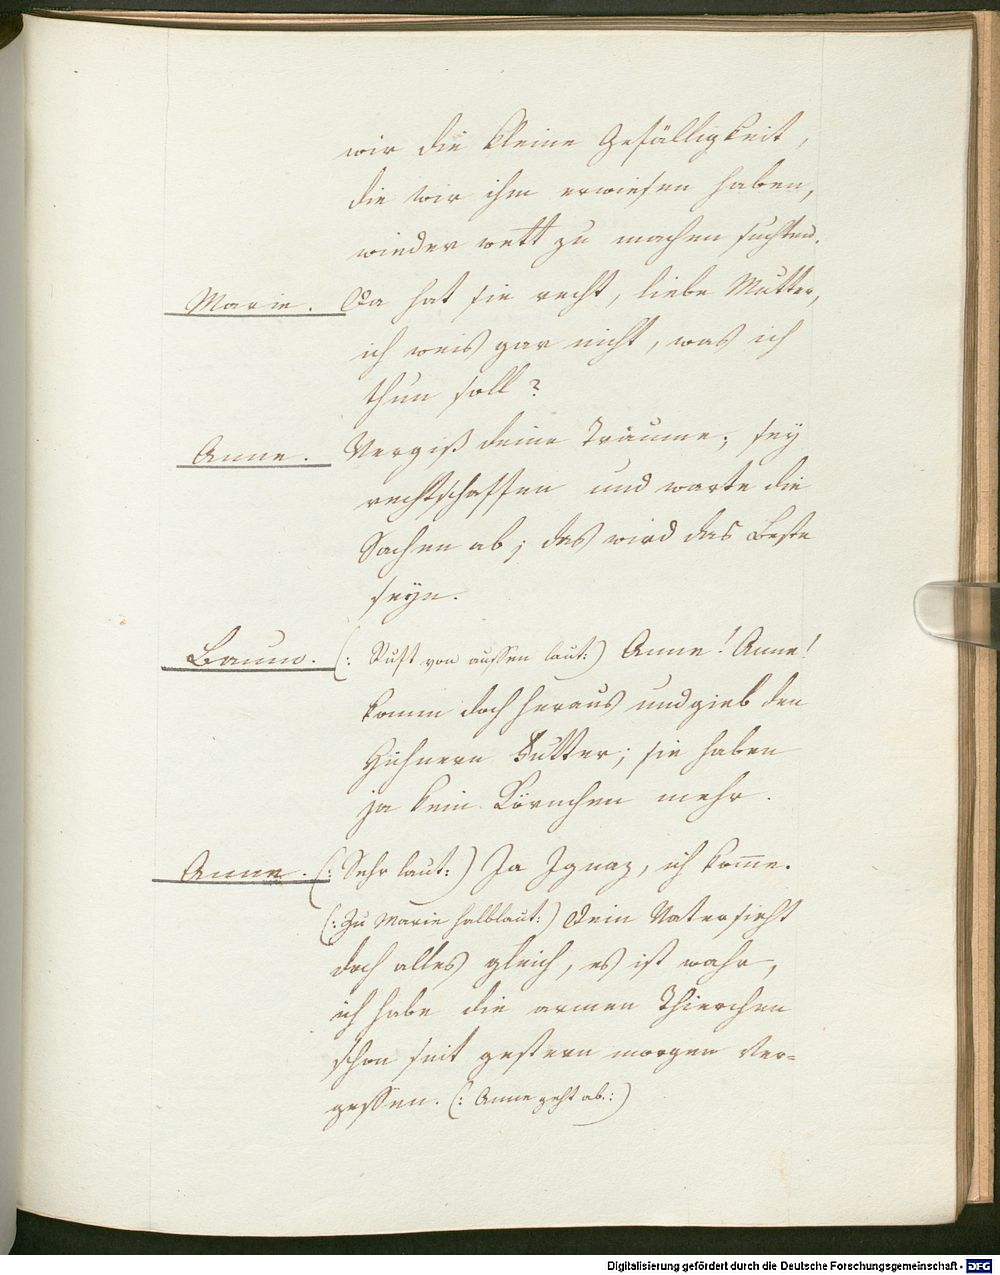 wir die kleine Gefälligkeit,
die wir ihm erwiesen haben,
wieder wett zu machen suchten.
Marie. Da hat sie recht, liebe Mutter,
ich weis gar nicht, was ich
thun soll?
Anne. Vergiß deine Träume; sey
rechtschaffen und warte die
Sachen ab; das wird das Beste
seyn.
Baum. (: Ruft von aussen laut:) Anne! Anne!
komm doch heraus und gieb den
Hühnern Futter; sie haben
ja kein Körnchen mehr.
Anne. (: Sehr laut:) Ja Ignaz, ich kom̅e.
(: Zu Marie halblaut:) Dein Vater sieht
doch alles gleich, es ist wahr,
ich habe die armen Thierchen
schon seit gestern morgen ver=
gessen. (: Anne geht ab.:)
Digitalisierung gefördert durch die Deutsche Forschungsgemeinschaft - DFG